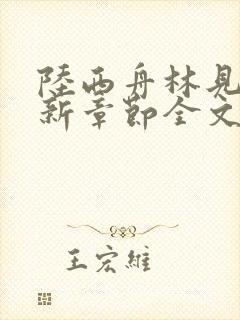 陸西舟林見
新章節全文
王宏維